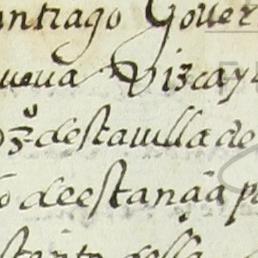 antiago Gover
ueva Vizcay
destavilla de
de estançia p